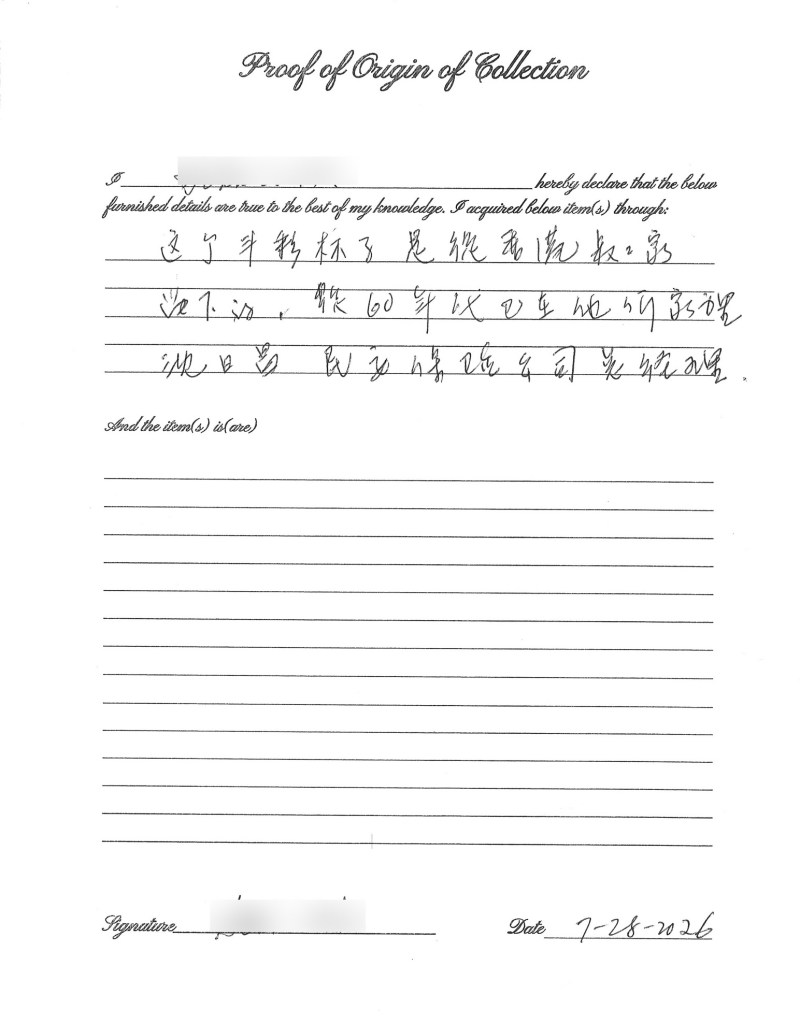 Proof of Origin of Collection
I hereby declare that the below
furnished details are true to the best of my knowledge. I acquired below item(s) through:
这个斗彩杯子是從香港叔〻家
60年代 他
民 保險公司 總理.
And the item(s) is(are)
Signature
Date 7-28-2026